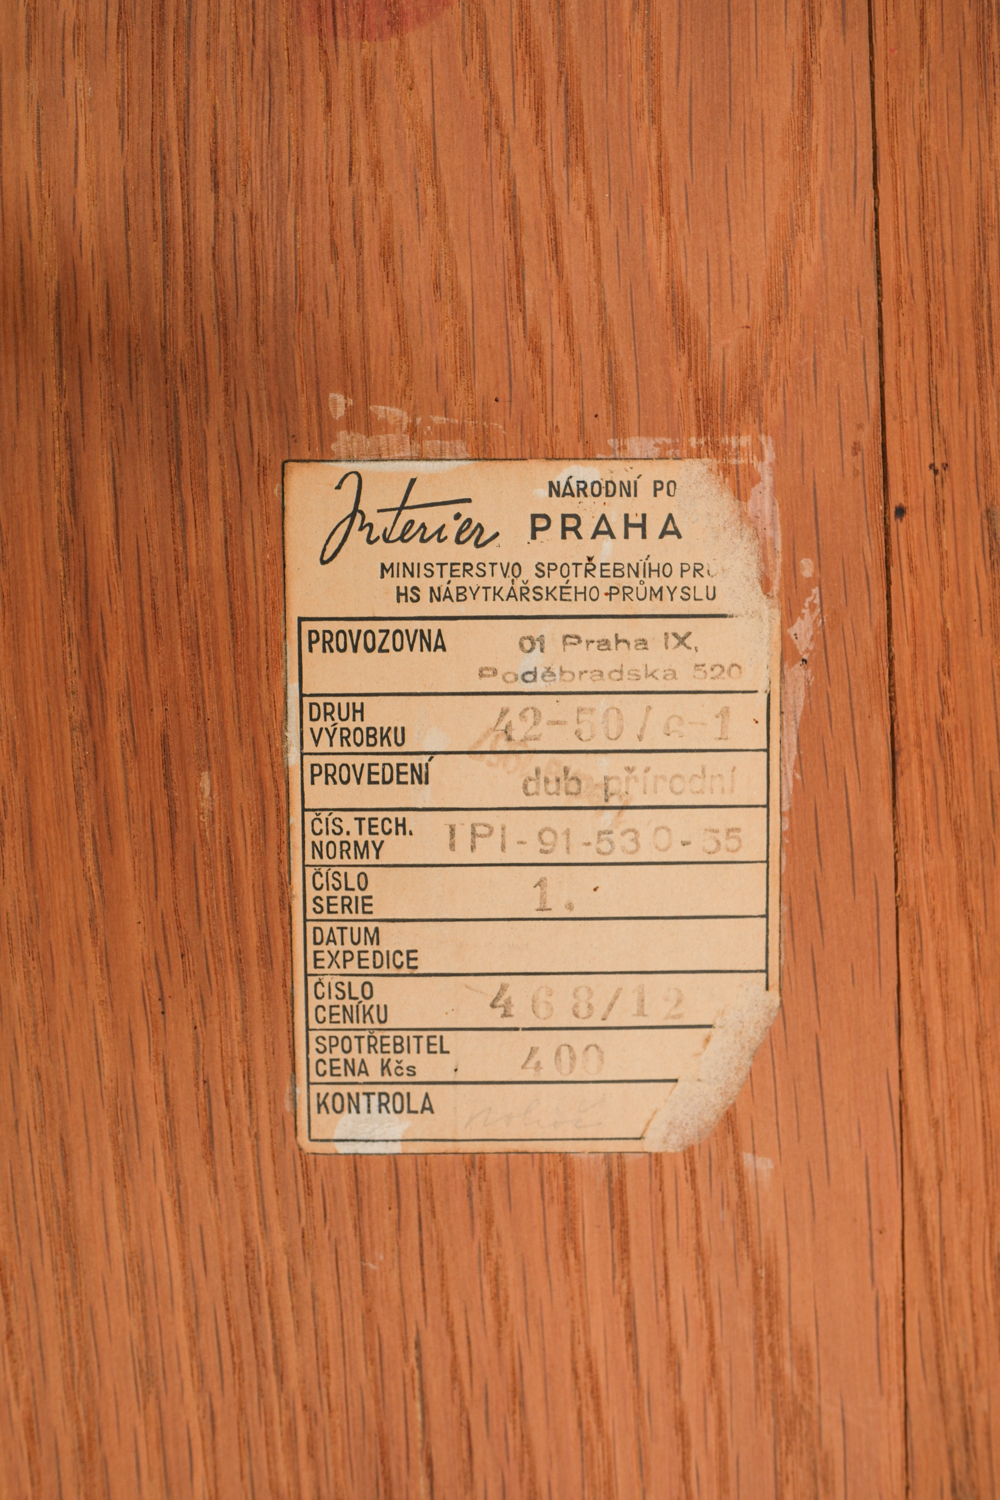 Interier NÁRODNÍ PO
PRAHA
MINISTERSTVO SPOTŘEBNÍHO PRŮ
HS NÁBYTKÁŘSKÉHO PRŮMYSLU
PROVOZOVNA 01 Praha IX,
Poděbradska 520
DRUH
VÝROBKU 42-50/c-1
PROVEDENÍ dub přírodní
ČÍS. TECH.
NORMY TPI-91-530-55
ČÍSLO
SERIE 1.
DATUM
EXPEDICE
ČÍSLO
CENÍKU 468/12
SPOTŘEBITEL
CENA Kčs 400
KONTROLA